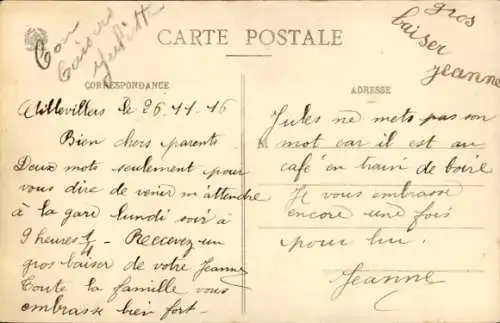 Ton
baisers
gros
baiser
Jeanne
CARTE POSTALE
CORRESPONDANCE
Aillevillers le 26.11.16
Bien chers parents
Deux mots seulement pour
vous dire de venir m'attendre
à la gare lundi soir à
9 heures 1/4 - Reccevez un
gros baiser de votre Jeanne
Toute la famille vous
embrasse bien fort -
ADRESSE
Jules ne mets pas son
mot car il est au
café en train de boire
Je vous embrasse
encore une fois
pour lui.
Jeanne